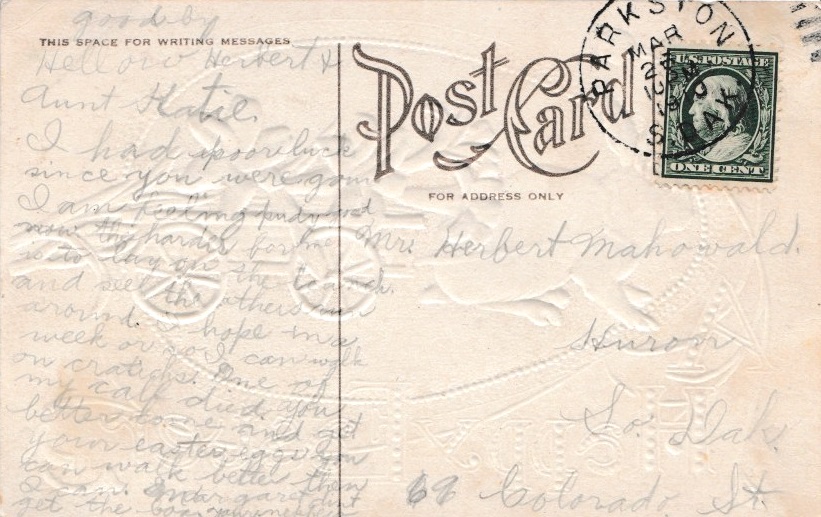 good by
THIS SPACE FOR WRITING MESSAGES
Hellow Herbert &
Aunt Katie.
I had poor luck
since you were gon
I am feeling pudy
now the hardes for me
is to lay on the
and see the others run
around I hope in a
week or so I can walk
on cratches. One of
my calf died. you
better come and get
your easter eggs you
can walk better then
I can. Margaret
get the
Post Card
FOR ADDRESS ONLY
PARKSTON
MAR
S. DAK
U.S. POSTAGE
ONE CENT
Mr. Herbert Mahowald.
Huron
So. Dak.
Colorado St.